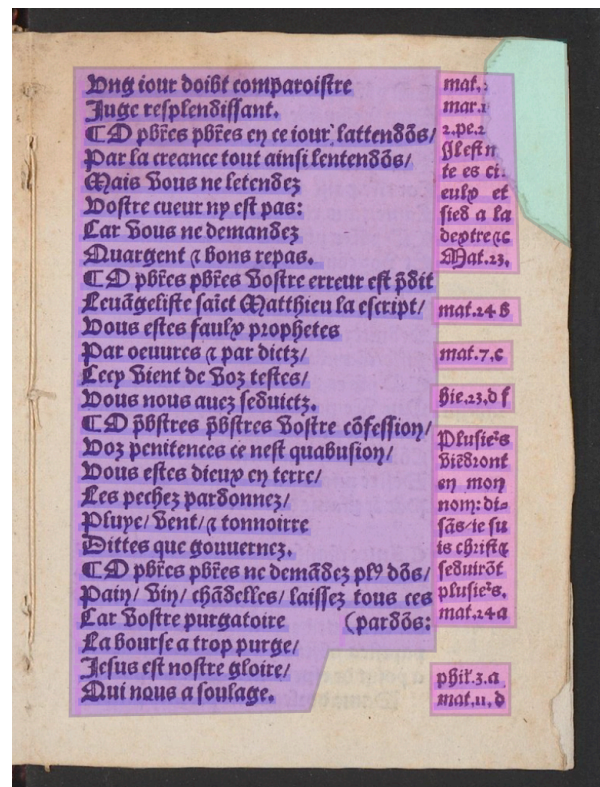 Vng iour doibt comparoistre
Juge resplendissant.
¶ O pbr̃es pbr̃es en ce iour lattendõs/
Par la creance tout ainsi lentendõs/
Mais vous ne lentẽdez
Vostre cueur ny est pas:
Car vous ne demandez
Quargent ⁊ bons repas.
¶ O pbr̃es pbr̃es vostre erreur est p̃dit
Leuãgeliste saĩct Matthieu la escript/
Vous estes faulx prophetes
Par oeuures ⁊ par dictz/
Lecy vient de voz testes/
Vous nous auez seduictz.
¶ O p̃bstres p̃bstres vostre cõfession/
Voz penitences ce nest quabusion/
Vous estes dieux en terre/
Les pechez pardonnez/
Pluye/ vent/ ⁊ tonnoirre
Dittes que gouuernez.
¶ O pbr̃es pbr̃es ne demãdez plꝰ dõs/
Pain/ vin/ chãdelles/ laissez tous ces
Car vostre purgatoire (pardõs:
La bourse a trop purge/
Jesus est nostre gloire/
Qui nous a soulage.
mat.
mar.
2.pe.2
Il est n
te es ci.
eulx et
sied a la
dextre ⁊c
Mat.23.
mat.24 b
mat.7.c
hie.23,d f
Plusieˢs
viẽdront
en mon
nom: di-
sãs/ie su
is christ⁊
seduirõt
plusieˢs.
mat.24 a
phil.3.a
mat.11.d